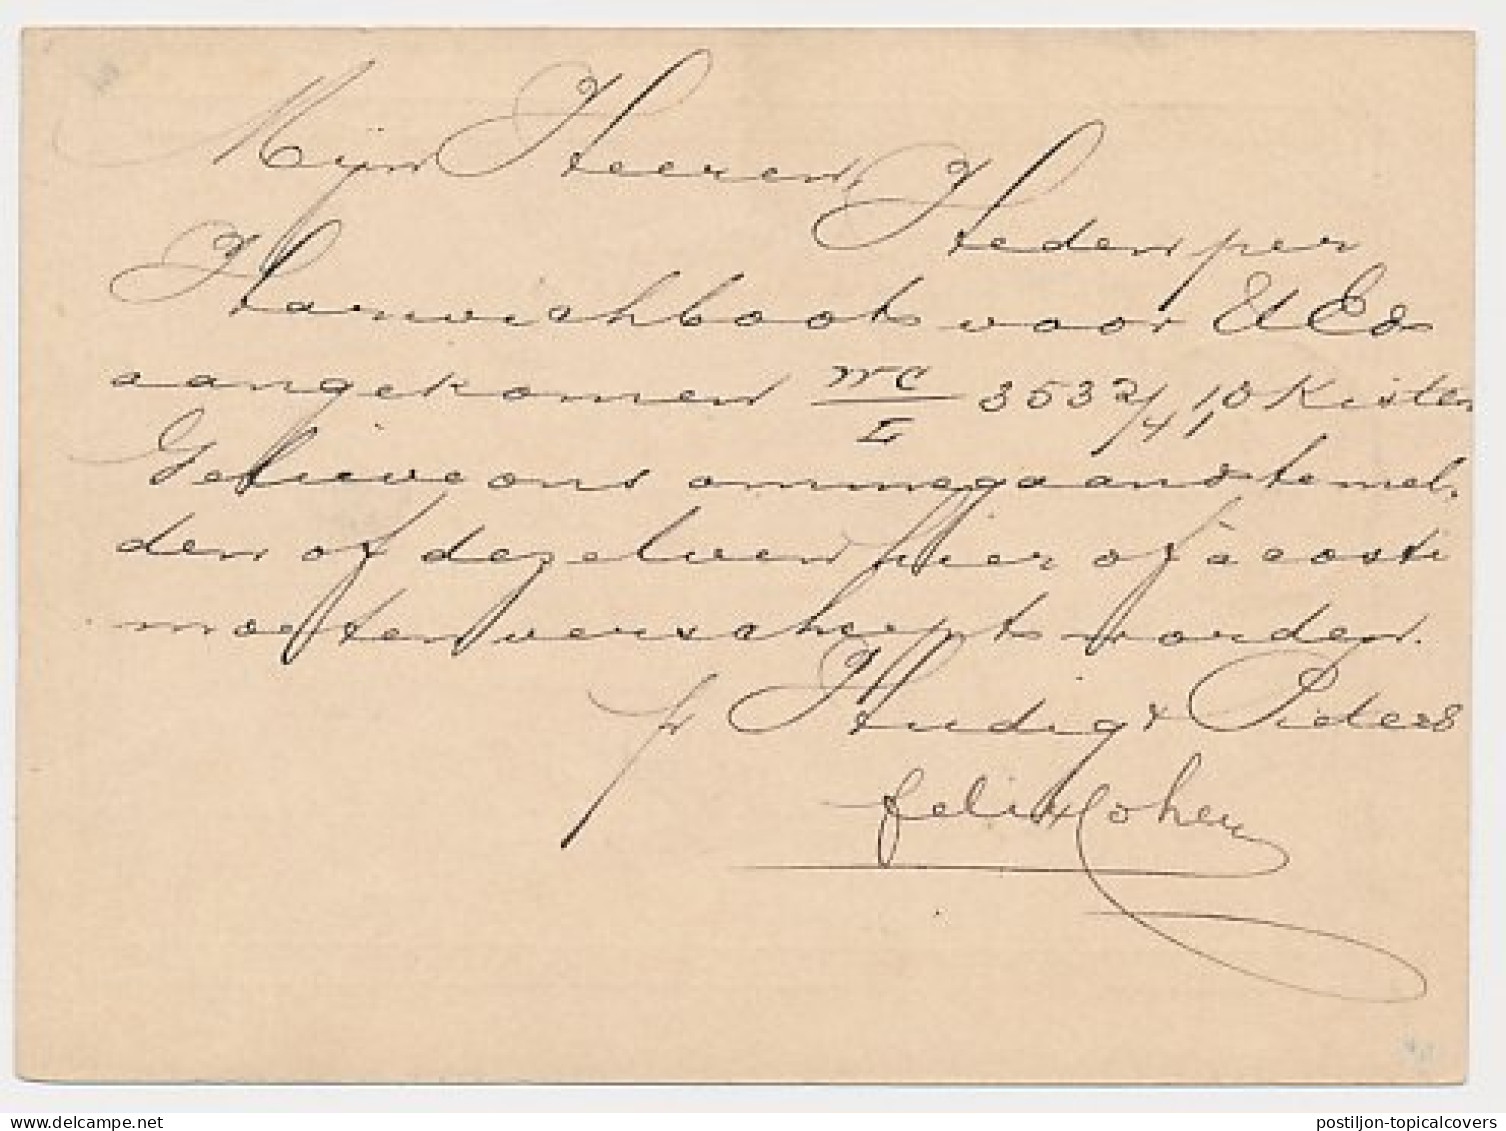 Mijn Heeren,
Heden per
Harwichboot voor UEd
aangekomen WC/L 3532/41, 10 Kisten
Gelieve ons ommegaand te mel-
den of dezelven hier of à costi
moeten verscheept worden.
pr Hudig & Pieters
Felix Cohen
delcampe.net
postiljon-topicalcovers